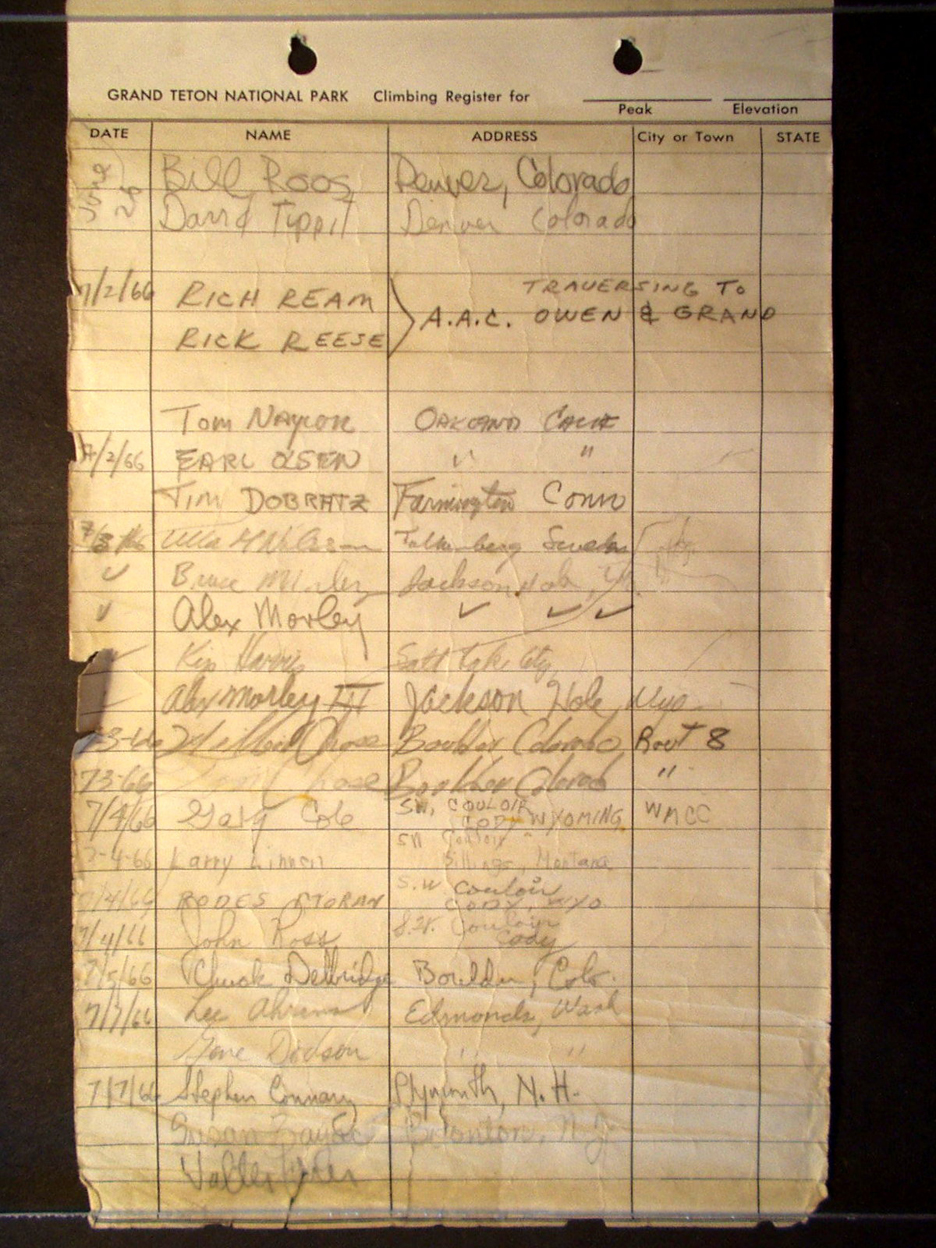 GRAND TETON NATIONAL PARK Climbing Register for
Peak Elevation
DATE NAME ADDRESS City or Town STATE
Bill Roos Denver, Colorado
David Tippit Denver Colorado
7/2/66 RICH REAM TRAVERSING TO
A.A.C. OWEN & GRAND
RICK REESE
Tom Naylor OAKLAND CALIF
7/2/66 EARL OLSEN " "
TIM DOBRATZ Farmington Conn
Ulla Falkenberg Sweden
Bruce Jackson Hole
Alex Morley
Kip Harris Salt Lake City
Alex Morley III Jackson Hole Wyo
Chase Boulder Colorado Rout 8
7-3-66 Chase Boulder Colorado "
7/4/66 Gary Cole SW, COULOIR
CODY WYOMING WMCC
7-4-66 Larry SW Couloir
Billings, Montana
7/4/66 S.W Couloir
CODY, WYO.
7/4/66 John Ross S.W. Couloir
Cody
7/5/66 Chuck Delbridge Boulder, Colo.
7/7/66 Lee Edmonds, Wash
Gene Dodson " "
7/7/66 Stephen Plymouth, N.H.
Susan N.J.
Walter